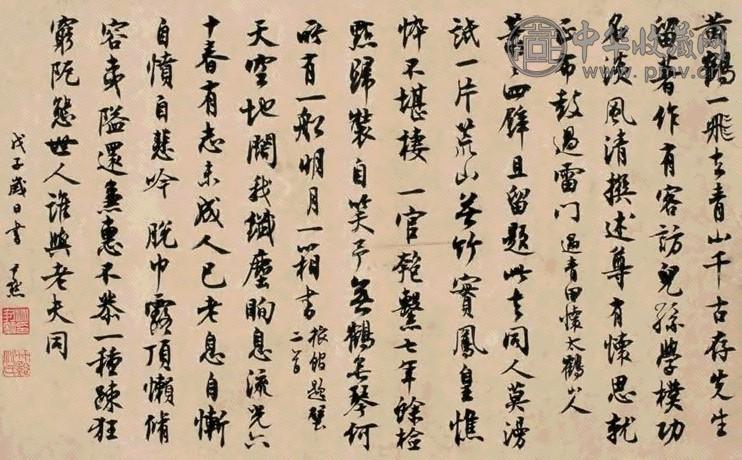 黃鶴一飛去青山千古存先生
留著作有客訪兒孫學樸功
名淡風清撰述尊有懷思就
正布鼓過雷門 過青田懷太鶴山人
四壁且留題此去同人莫漫
試一片荒山無竹實鳳皇憔
悴不堪棲 一官匏繫七年餘檢
點歸裝自笑予無鶴無琴何
所有一船明月一箱書 旅館題壁二首
天空地闊我纖塵眴息流光六
十春有志未成人已老息自慚
自憤自悲吟 脫巾露頂懶脩
容夷隘還兼惠不恭一種疎狂
窮阨態世人誰與老夫同
戊子歲日書
中华收藏网
www.pmv.org.cn